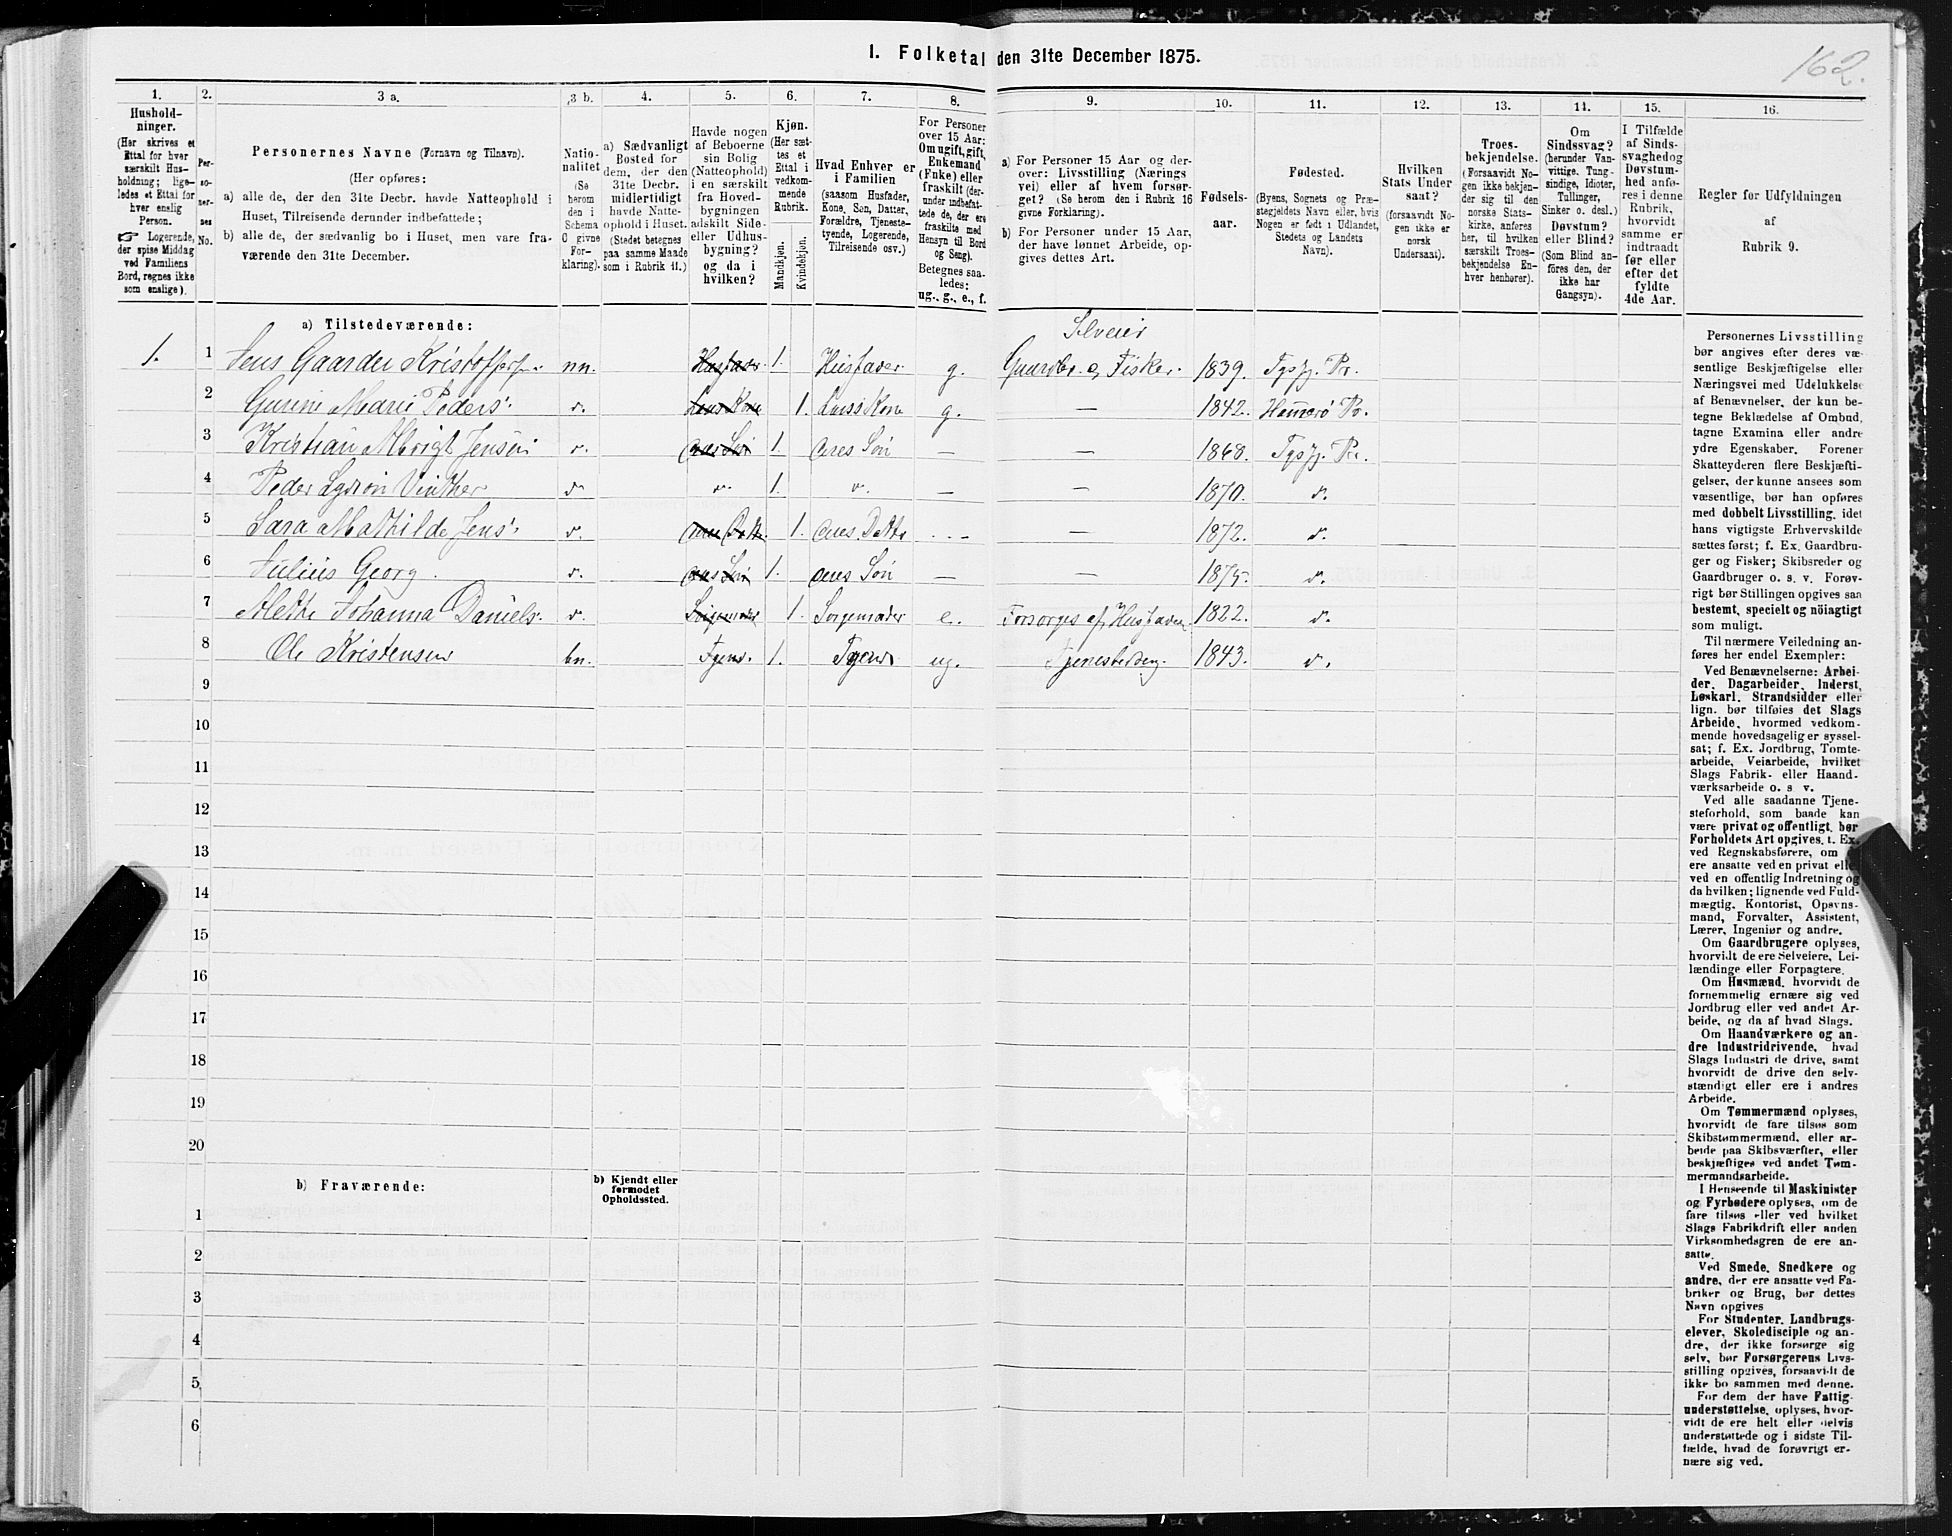 I. Folketal den 31te December 1875.
162.
1.
Hushold-
ninger.
(Her skrives et
Ettal for hver
særskilt Hus-
holdning; lige-
ledes et Ettal for
hver enslig
Person.
Logerende,
der spise Middag
ved Familiens
Bord, regnes ikke
som enslige).
2.
Per-
so-
ner-
nes
No.
3 a.
Personernes Navne (Fornavn og Tilnavn).
(Her opføres:
a) alle de, der den 31te Decbr. havde Natteophold i
Huset, Tilreisende derunder indbefattede;
b) alle de, der sædvanlig bo i Huset, men vare fra-
værende den 31te December.
3 b.
Natio-
nalitet
(Se
herom
den i
Schema
O givne
For-
klaring).
4.
a) Sædvanligt
Bosted for
dem, der den
31te Decbr.
midlertidigt
havde Natte-
ophold i Huset.
(Stedet betegnes
paa samme Maade
som i Rubrik 11.)
5.
Havde nogen
af Beboerne
sin Bolig
(Natteophold)
i en særskilt
fra Hoved-
bygningen
adskilt Side-
eller Udhus-
bygning?
og da i
hvilken?
6.
Kjøn.
(Her sæt-
tes et
Ettal i
vedkom-
mende
Rubrik.
Mandkjøn.
Kvindekjøn.
7.
Hvad Enhver er
i Familien
(saasom Husfader,
Kone, Søn, Datter,
Forældre, Tjeneste-
tyende, Logerende,
Tilreisende osv.)
8.
For Personer
over 15 Aar:
Om ugift, gift,
Enkemand
(Enke) eller
fraskilt (der-
under indbefat-
tede de, der ere
fraskilte med
Hensyn til Bord
og Seng).
Betegnes saa-
ledes:
ug., g., e., f.
9.
a) For Personer 15 Aar og der-
over: Livsstilling (Nærings
vei) eller af hvem forsør-
get? (Se herom den i Rubrik 16
givne Forklaring).
b) For Personer under 15 Aar,
der have lønnet Arbeide, op-
gives dettes Art.
10.
Fødsels-
aar.
11.
Fødested.
(Byens, Sognets og Præ-
stegjeldets Navn eller, hvis
Nogen er født i Udlandet,
Stedets og Landets
Navn).
12.
Hvilken
Stats Under
saat?
(forsaavidt No-
gen ikke er
norsk
Undersaat).
13.
Troes-
bekjendelse.
(Forsaavidt No-
gen ikke bekjen-
der sig til den
norske Stats-
kirke, anføres
her, til hvilken
særskilt Troes-
bekjendelse En-
hver henhører).
14.
Om
Sindssvag?
(herunder Van-
vittige, Tung-
sindige, Idioter,
Tullinger,
Sinker o. desl.)
Døvstum?
eller Blind?
(Som Blind an-
føres den, der
ikke har
Gangsyn).
15.
I Tilfælde
af Sinds-
svaghed og
Døvstum-
hed anfø-
res i denne
Rubrik,
hvorvidt
samme er
indtraadt
før eller
efter det
fyldte
4de Aar.
16.
Regler for Udfyldningen
af
Rubrik 9.
a) Tilstedeværende:
Selveier
1. 1 Jens Gaarder Kristoffersen nn. Husfader 1. Husfader g. Gaardbr. og Fisker. 1839. Tysfj. Pr.
2 Gurine Marie Peders. d. Husf. Kone 1. Husf. Kone g. — 1842. Hamarø Pr.
3 Kristian Albrigt Jensen d. deres Søn 1. deres Søn — — 1868. Tysfj. Pr.
4 Peder Vinther d. d. 1. d. — — 1870. d.
5 Sara Mathilde Jens. d. deres Datt. 1. deres Datter — — 1872. d.
6 Julius Georg. d. deres Søn 1. deres Søn — — 1875. d.
7 Alethe Johanna Daniels. d. 1. e. Forsørges af Husfaderen 1822. d.
8 Ole Kristensen bn. Tjener 1. Tjener ug. 1843. d.
9
10
11
12
13
14
15
16
17
18
19
20
b) Fraværende:
b) Kjendt eller
formodet
Opholdssted.
1
2
3
4
5
6
Personernes Livsstilling
bør angives efter deres væ-
sentlige Beskjæftigelse eller
Næringsvei med Udelukkelse
af Benævnelser, der kun be-
tegne Beklædelse af Ombud,
tagne Examina eller andre
ydre Egenskaber. Forener
Skatteyderen flere Beskjæfti-
gelser, der kunne ansees som
væsentlige, bør han opføres
med dobbelt Livsstilling, idet
hans vigtigste Erhvervskilde
sættes først; f. Ex. Gaardbru-
ger og Fisker; Skibsreder og
Gaardbruger o. s. v. Forøv-
rigt bør Stillingen opgives saa
bestemt, specielt og nöiagtigt
som muligt.
Til nærmere Veiledning an-
føres her endel Exempler:
Ved Benævnelserne: Arbei-
der, Dagarbeider, Inderst,
Løskarl, Strandsidder eller
lign. bør tilføies det Slags
Arbeide, hvormed vedkom-
mende hovedsagelig er syssel-
sat; f. Ex. Jordbrug, Tomte-
arbeide, Veiarbeide, hvilket
Slags Fabrik- eller Haand-
værksarbeide o. s v.
Ved alle saadanne Tjene-
steforhold, som baade kan
være privat og offentligt, bør
Forholdets Art opgives, t. Ex.
ved Regnskabsførere, om
ere ansatte ved en privat elle
ved en offentlig Indretning og
da hvilken; lignende ved Fuld-
mægtig, Kontorist, Opsyns-
mand, Forvalter, Assistent,
Lærer, Ingeniør og andre.
Om Gaardbrugere oplyses,
hvorvidt de ere Selveiere, Lei-
lændinge eller Forpagtere.
Om Husmænd, hvorvidt de
fornemmelig ernære sig ved
Jordbrug eller ved andet Ar-
beide, og da af hvad Slags.
Om Haandværkere og an-
dre Industridrivende, hvad
Slags Industri de drive, samt
hvorvidt de drive den selv-
stændigt eller ere i andres
Arbeide.
Om Tømmermænd oplyses,
hvorvidt de fare tilsøs som
Skibstømmermænd, eller ar-
beide paa Skibsværfter, eller
beskjæftiges ved andet Tøm-
mermandsarbeide.
I Henseende til Maskinister
og Fyrbødere oplyses, om de
fare tilsøs eller ved hvilket
Slags Fabrikdrift eller anden
Virksomhedsgren de ere an-
satte.
Ved Smede, Snedkere og
andre, der ere ansatte ved Fa-
briker og Brug, bør dettes
Navn opgives
For Studenter, Landbrugs-
elever, Skoledisciple og an-
dre, der ikke forsørge sig
selv, bør Forsørgerens Livs-
stilling opgives, forsaavidt de
ikke bo sammen med denne.
For dem der have Fattig-
understøttelse, oplyses, hvor-
vidt de ere helt eller delvis
understøttede og i sidste Til-
fælde, hvad de forøvrigt er-
nære sig ved.